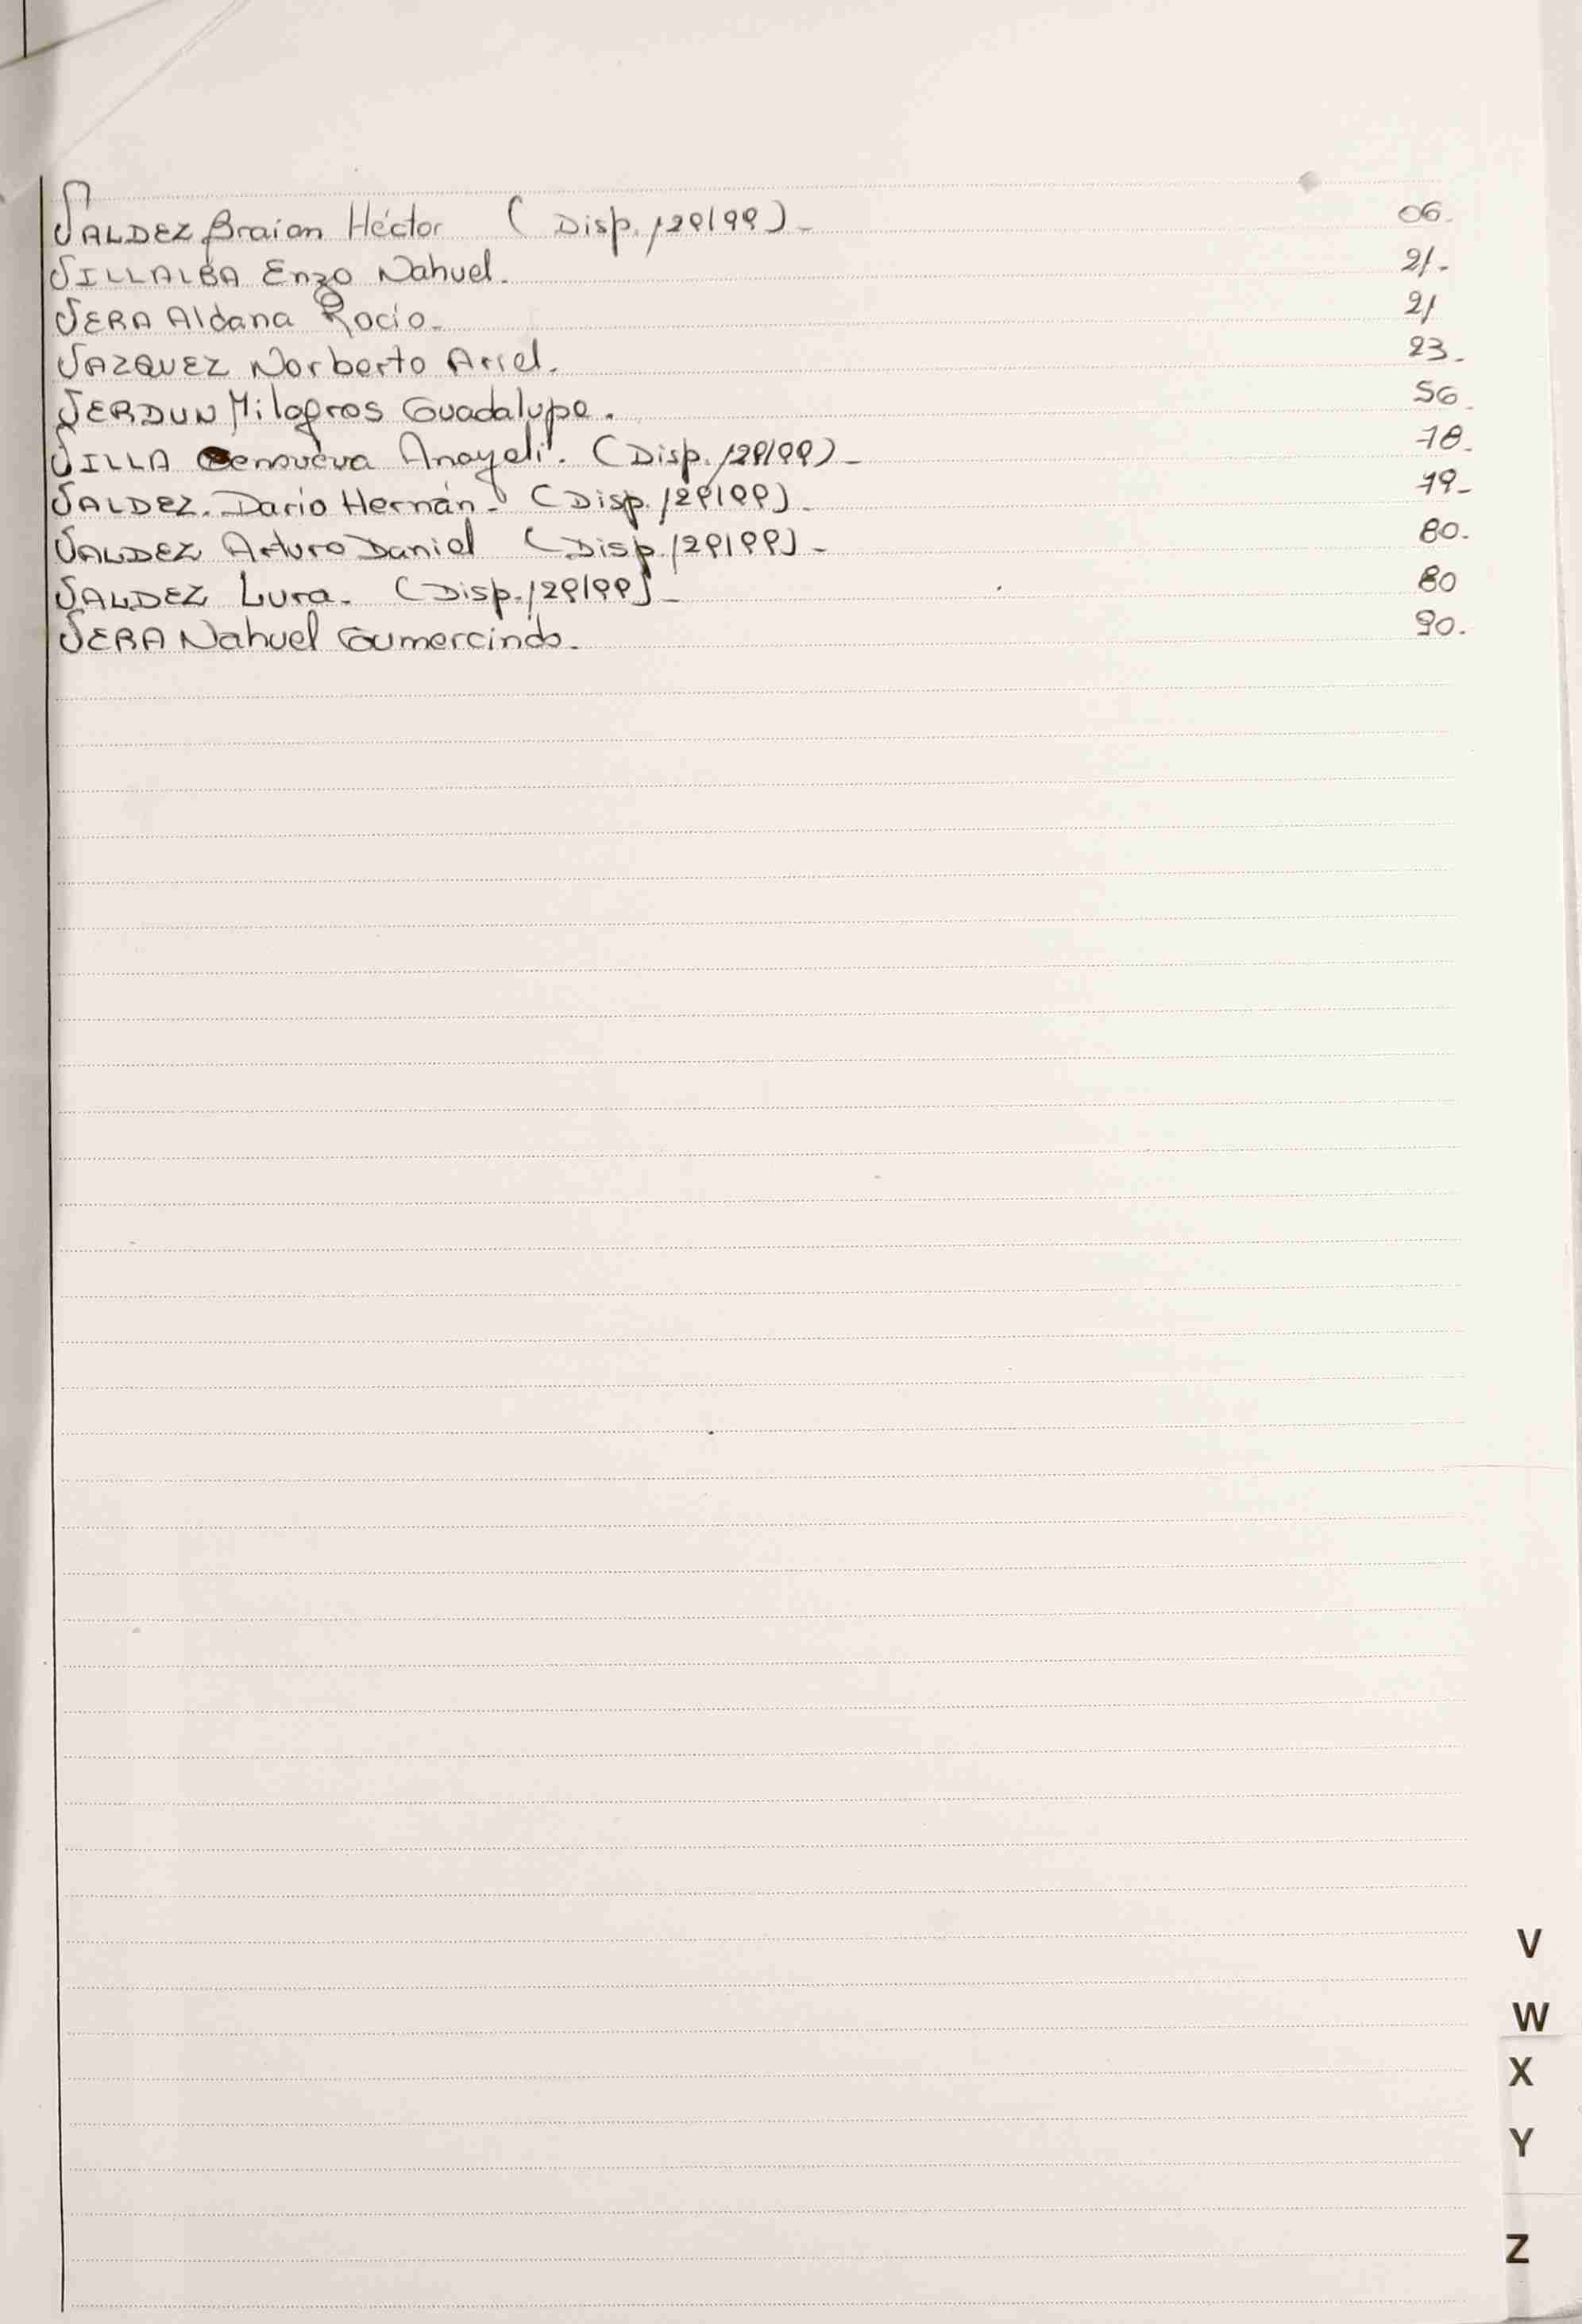 VALDEZ Braian Héctor (Disp. 129/99)- 06.
VILLALBA Enzo Nahuel. 21.-
VERA Aldana Rocío. 21
VAZQUEZ Norberto Ariel. 23.
VERDUN Milagros Guadalupe. 56.
VILLA Genoveva Anayeli. (Disp. 129/99)- 78.
VALDEZ. Darío Hernán- (Disp. 129/99). 79-
VALDEZ Arturo Daniel (Disp. 129/99)- 80.
VALDEZ Lura. (Disp. 129/99)- 80
VERA Nahuel Gumercindo. 90.
V
W
X
Y
Z